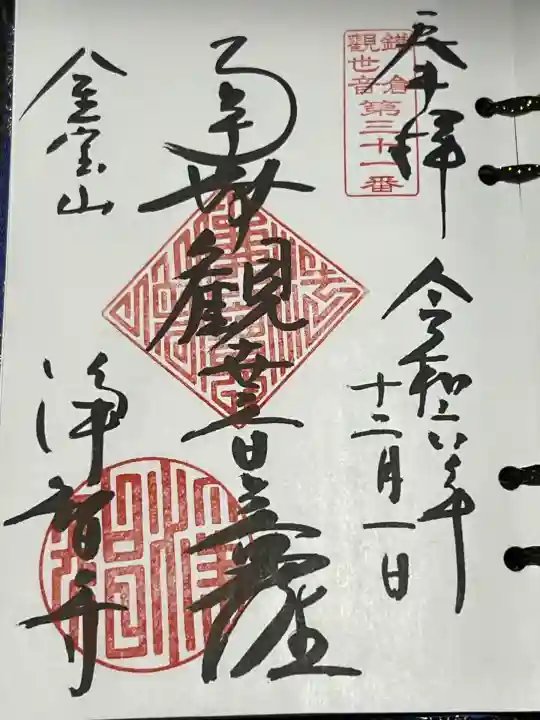 奉拝
鎌倉
観世音第三十一番
令和六年
十二月一日
南無観世音菩薩
金宝山
浄智寺